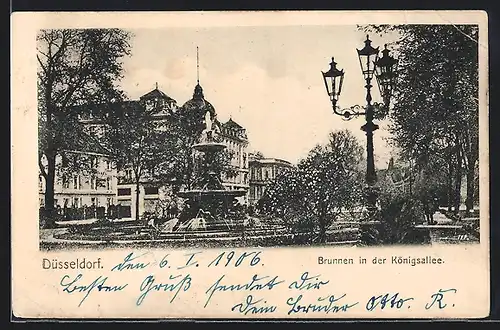 Düsseldorf. den 6. I. 1906.
Brunnen in der Königsallee.
Besten Gruß sendet Dir
Dein Bruder Otto. R.